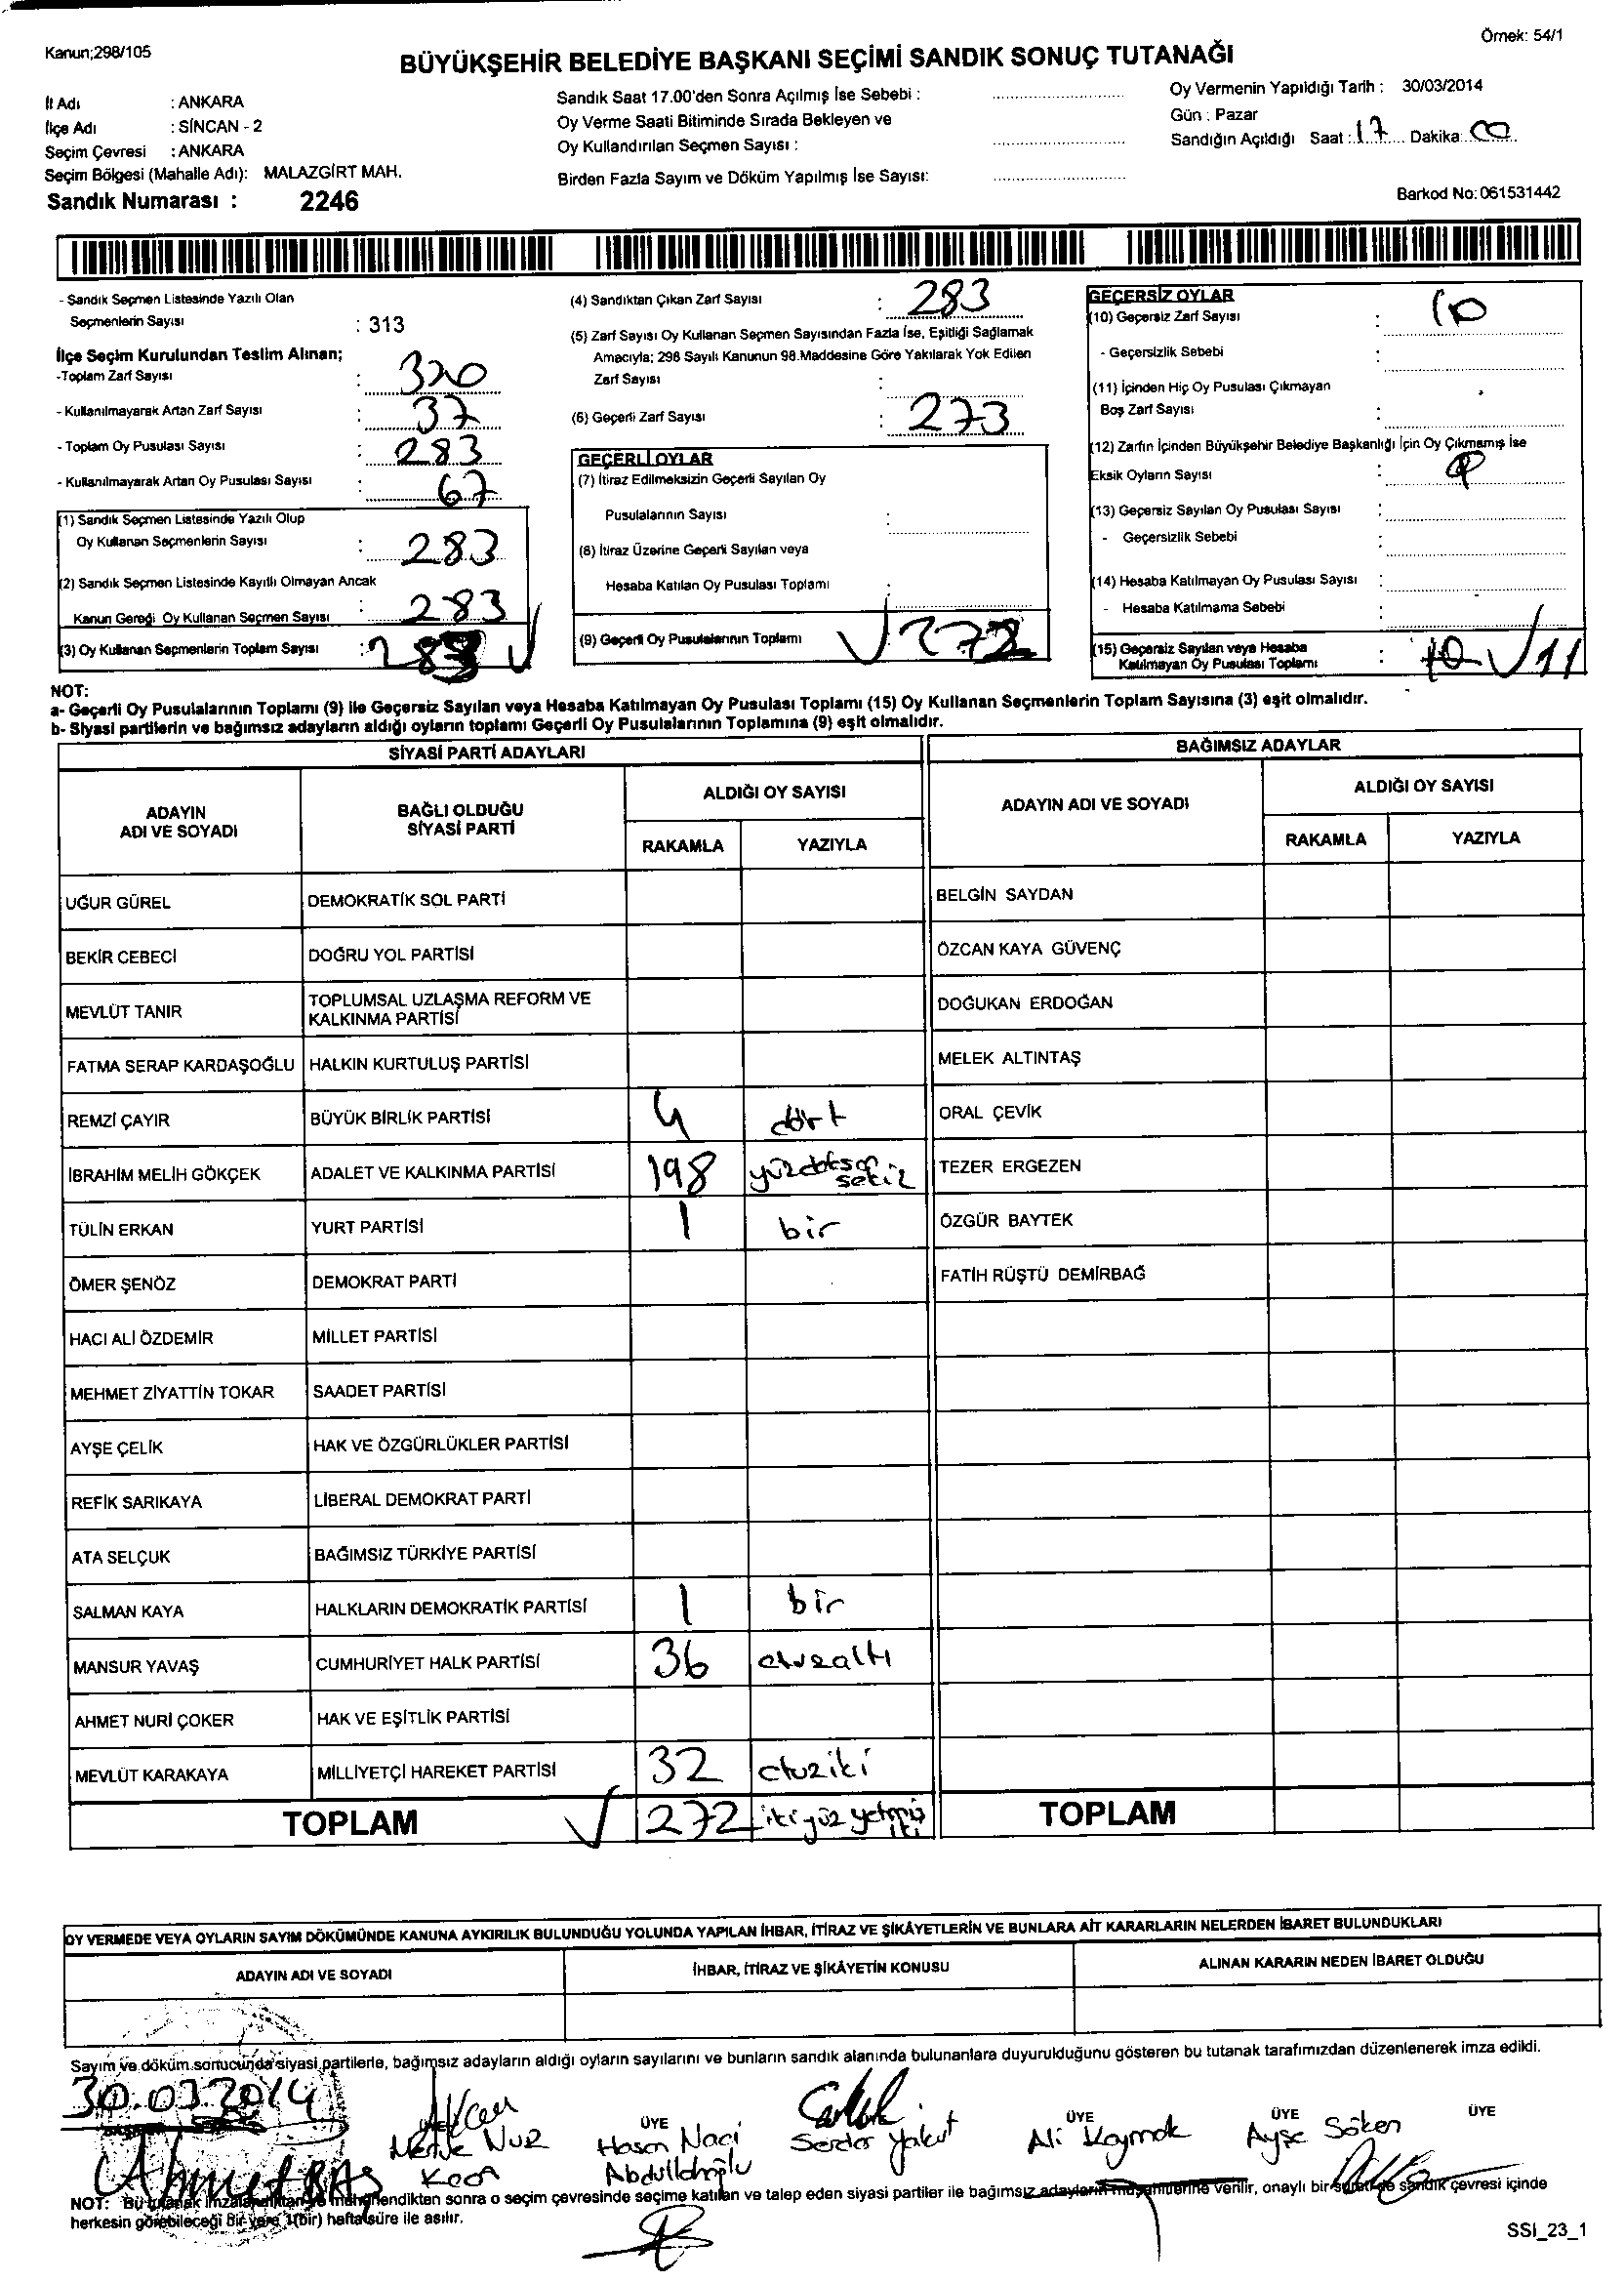 Kanun;298/105
Örnek: 54/1
BÜYÜKŞEHİR BELEDİYE BAŞKANI SEÇİMİ SANDIK SONUÇ TUTANAĞI
İl Adı : ANKARA
İlçe Adı : SİNCAN - 2
Seçim Çevresi : ANKARA
Seçim Bölgesi (Mahalle Adı): MALAZGİRT MAH.
Sandık Numarası : 2246
Sandık Saat 17.00'den Sonra Açılmış İse Sebebi :
Oy Verme Saati Bitiminde Sırada Bekleyen ve
Oy Kullandırılan Seçmen Sayısı :
Birden Fazla Sayım ve Döküm Yapılmış İse Sayısı:
Oy Vermenin Yapıldığı Tarih : 30/03/2014
Gün : Pazar
Sandığın Açıldığı Saat : 17 Dakika: 00
Barkod No: 061531442
- Sandık Seçmen Listesinde Yazılı Olan
Seçmenlerin Sayısı : 313
İlçe Seçim Kurulundan Teslim Alınan;
-Toplam Zarf Sayısı : 320
- Kullanılmayarak Artan Zarf Sayısı : 37
- Toplam Oy Pusulası Sayısı : 283
- Kullanılmayarak Artan Oy Pusulası Sayısı : 67
(1) Sandık Seçmen Listesinde Yazılı Olup
Oy Kullanan Seçmenlerin Sayısı : 283
(2) Sandık Seçmen Listesinde Kayıtlı Olmayan Ancak
Kanun Gereği Oy Kullanan Seçmen Sayısı : 283
(3) Oy Kullanan Seçmenlerin Toplam Sayısı : 283
(4) Sandıktan Çıkan Zarf Sayısı : 283
(5) Zarf Sayısı Oy Kullanan Seçmen Sayısından Fazla İse, Eşitliği Sağlamak
Amacıyla; 298 Sayılı Kanunun 98.Maddesine Göre Yakılarak Yok Edilen
Zarf Sayısı :
(6) Geçerli Zarf Sayısı : 273
GEÇERLİ OYLAR
(7) İtiraz Edilmeksizin Geçerli Sayılan Oy
Pusulalarının Sayısı :
(8) İtiraz Üzerine Geçerli Sayılan veya
Hesaba Katılan Oy Pusulası Toplamı :
(9) Geçerli Oy Pusulalarının Toplamı 272
GEÇERSİZ OYLAR
(10) Geçersiz Zarf Sayısı : 10
- Geçersizlik Sebebi :
(11) İçinden Hiç Oy Pusulası Çıkmayan
Boş Zarf Sayısı :
(12) Zarfın İçinden Büyükşehir Belediye Başkanlığı İçin Oy Çıkmamış İse
Eksik Oyların Sayısı :
(13) Geçersiz Sayılan Oy Pusulası Sayısı :
- Geçersizlik Sebebi :
(14) Hesaba Katılmayan Oy Pusulası Sayısı :
- Hesaba Katılmama Sebebi :
(15) Geçersiz Sayılan veya Hesaba
Katılmayan Oy Pusulası Toplamı : 10 11
NOT:
a- Geçerli Oy Pusulalarının Toplamı (9) ile Geçersiz Sayılan veya Hesaba Katılmayan Oy Pusulası Toplamı (15) Oy Kullanan Seçmenlerin Toplam Sayısına (3) eşit olmalıdır.
b- Siyasi partilerin ve bağımsız adayların aldığı oyların toplamı Geçerli Oy Pusulalarının Toplamına (9) eşit olmalıdır.
SİYASİ PARTİ ADAYLARI
BAĞIMSIZ ADAYLAR
ADAYIN
ADI VE SOYADI
BAĞLI OLDUĞU
SİYASİ PARTİ
ALDIĞI OY SAYISI
RAKAMLA YAZIYLA
ADAYIN ADI VE SOYADI
ALDIĞI OY SAYISI
RAKAMLA YAZIYLA
UĞUR GÜREL DEMOKRATİK SOL PARTİ BELGİN SAYDAN
BEKİR CEBECİ DOĞRU YOL PARTİSİ ÖZCAN KAYA GÜVENÇ
MEVLÜT TANIR TOPLUMSAL UZLAŞMA REFORM VE
KALKINMA PARTİSİ DOĞUKAN ERDOĞAN
FATMA SERAP KARDAŞOĞLU HALKIN KURTULUŞ PARTİSİ MELEK ALTINTAŞ
REMZİ ÇAYIR BÜYÜK BİRLİK PARTİSİ 4 dört ORAL ÇEVİK
İBRAHİM MELİH GÖKÇEK ADALET VE KALKINMA PARTİSİ 198 yüzdoksan
sekiz TEZER ERGEZEN
TÜLİN ERKAN YURT PARTİSİ 1 bir ÖZGÜR BAYTEK
ÖMER ŞENÖZ DEMOKRAT PARTİ FATİH RÜŞTÜ DEMİRBAĞ
HACI ALİ ÖZDEMİR MİLLET PARTİSİ
MEHMET ZİYATTİN TOKAR SAADET PARTİSİ
AYŞE ÇELİK HAK VE ÖZGÜRLÜKLER PARTİSİ
REFİK SARIKAYA LİBERAL DEMOKRAT PARTİ
ATA SELÇUK BAĞIMSIZ TÜRKİYE PARTİSİ
SALMAN KAYA HALKLARIN DEMOKRATİK PARTİSİ 1 bir
MANSUR YAVAŞ CUMHURİYET HALK PARTİSİ 36 otuzaltı
AHMET NURİ ÇOKER HAK VE EŞİTLİK PARTİSİ
MEVLÜT KARAKAYA MİLLİYETÇİ HAREKET PARTİSİ 32 otuziki
TOPLAM 272 ikiyüz yetmiş
iki TOPLAM
OY VERMEDE VEYA OYLARIN SAYIM DÖKÜMÜNDE KANUNA AYKIRILIK BULUNDUĞU YOLUNDA YAPILAN İHBAR, İTİRAZ VE ŞİKÂYETLERİN VE BUNLARA AİT KARARLARIN NELERDEN İBARET BULUNDUKLARI
ADAYIN ADI VE SOYADI İHBAR, İTİRAZ VE ŞİKÂYETİN KONUSU ALINAN KARARIN NEDEN İBARET OLDUĞU
Sayım ve döküm sonucunda siyasi partilerle, bağımsız adayların aldığı oyların sayılarını ve bunların sandık alanında bulunanlara duyurulduğunu gösteren bu tutanak tarafımızdan düzenlenerek imza edildi.
30.03.2014
ÜYE ÜYE ÜYE ÜYE
Merve Nur Hasan Naci Serdar Yakut Ali Kaymak Ayşe Söken
Abdullahoğlu
Ahmet BAŞ
NOT: Bu tutanak imzalandıktan ve mühürlendikten sonra o seçim çevresinde seçime katılan ve talep eden siyasi partiler ile bağımsız adayların müşahitlerine verilir, onaylı bir sureti de sandık çevresi içinde
herkesin görebileceği bir yere 1(bir) hafta süre ile asılır.
SSI_23_1